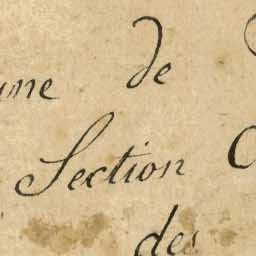 de
Section
des